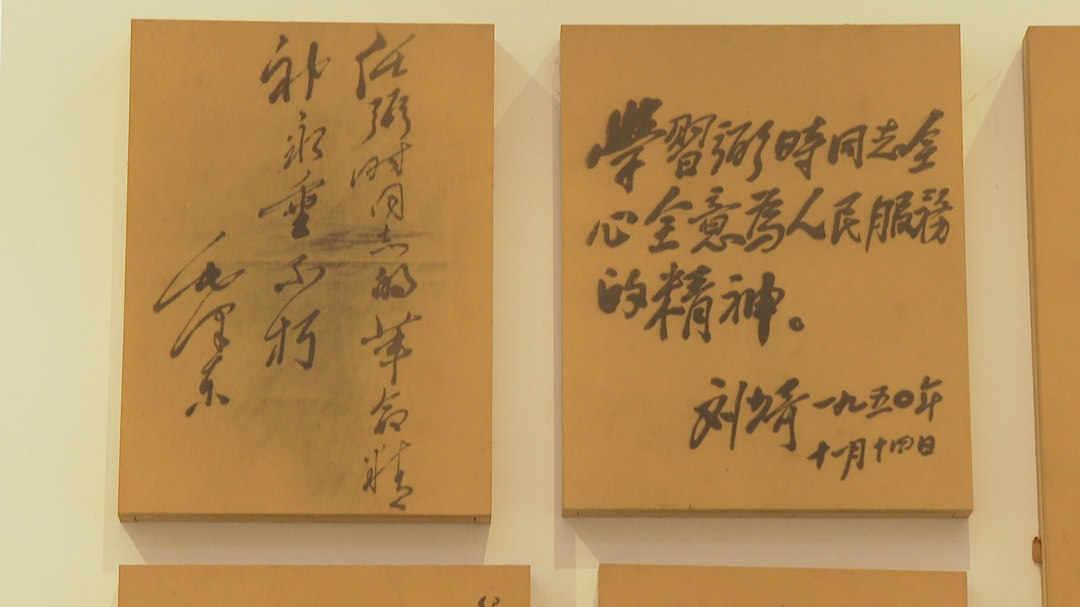 任弼时同志的革命精
神永垂不朽
毛泽东
學習弼時同志全
心全意為人民服務
的精神。
刘少奇 一九五〇年
十一月十四日